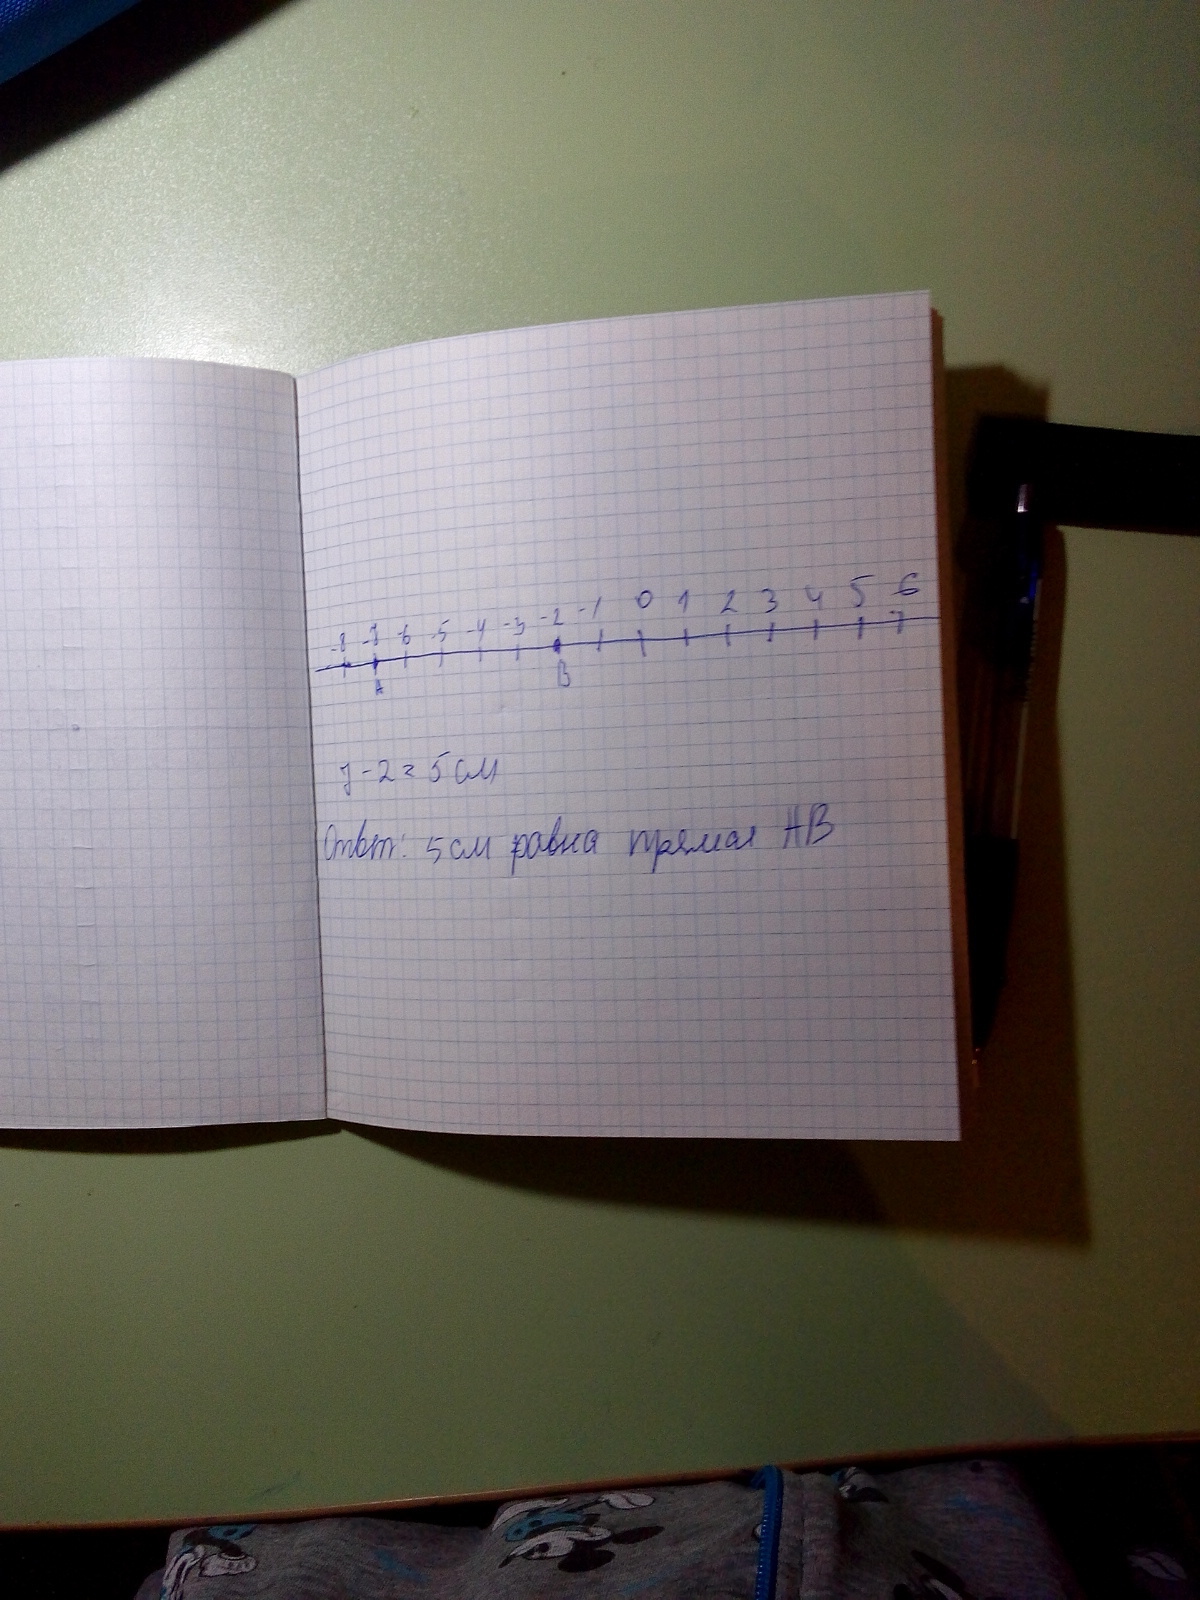 -8 -7 -6 -5 -4 -3 -2 -1 0 1 2 3 4 5 6
A B
7-2=5см
Ответ: 5см равна прямая АВ